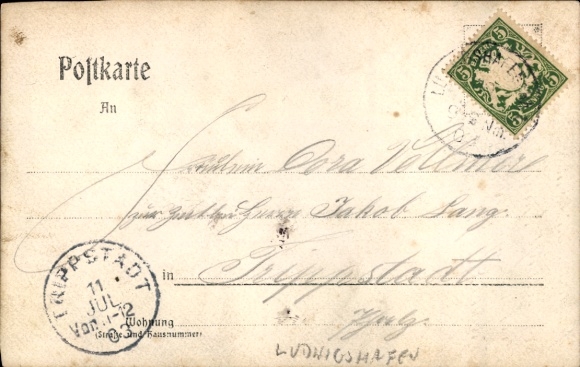 Postkarte
An
Fräulein Dora Vollmere
zur Zeit bei Herrn Jakob Lang.
in Trippstadt
Pfalz
Wohnung
(Straße und Hausnummer)
TRIPPSTADT
11
JUL
Vor. 11-12
03
BAYERN
5 5
5 5
LUDWIGSHAFEN